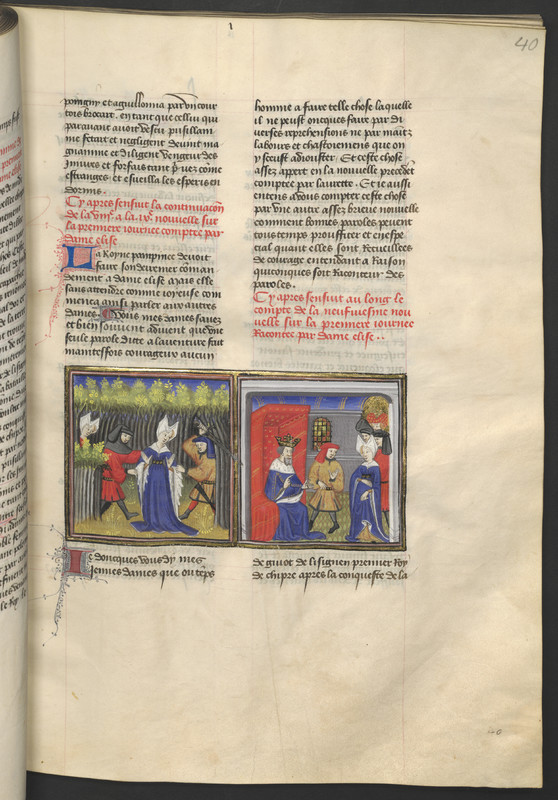 40
poingny et aguillonna par un cour
tois brocart. en tant que cellui qui
paravant avoit vescu pusillani
me fetart et negligent devint ma
gnanime et diligent vengeur des
iniures et forfais tant pour luy come
estranges. et esveilla les esperis en
dormis.
Cy apres sensuit la continuacion
de la nouvelle sur
la premiere iournee comptee par
dame elise
La Royne pampinee devoit
faire son derrenier comman
dement a dame elise mais elle
sans attendre comme ioyeuse com
menca ainsi parler aux autres
dames. Vous mes dames savez
et bien souvent advient que une
seule parole dicte a laventure fait
maintesfois couraigeux aucun
homme a faire telle chose laquelle
il ne peust oncques faire par di
verses reprehensions ne par maintz
labours et chastoiemens que on
y sceust adiouster. Et ceste chose
assez appert en la nouvelle precedet
comptee par laurette. Et ie aussi
entens a vous compter ceste chose
par une autre assez brieve nouvelle
comment bonnes paroles pevent
tous temps prouffiter et en espe
cial quant elles sont Recueillees
de couraige entendant a Raison
quiconques soit Raconteur des
paroles.
Cy apres sensuit au long le
compte de la neufviesme nou
velle sur la premiere iournee
Racontee par dame elise..
Ie doncques vous dy mes
iennes dames que ou temps
de guiot de lisignen premier Roy
de chipre apres la conqueste de la